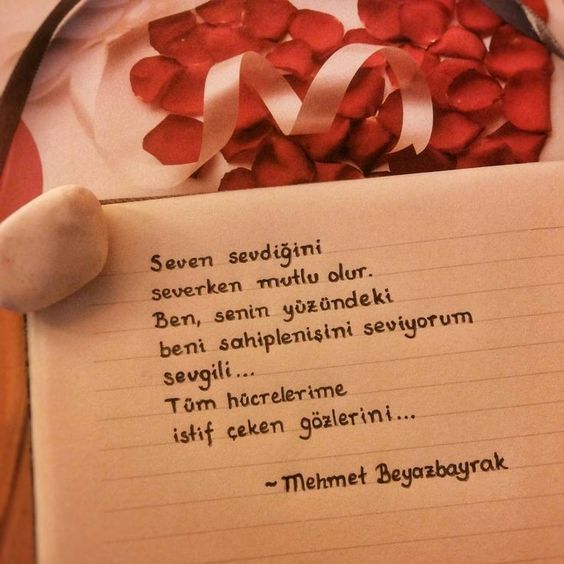 Seven sevdiğini
severken mutlu olur.
Ben, senin yüzündeki
beni sahiplenişini seviyorum
sevgili...
Tüm hücrelerime
istif çeken gözlerini...
~Mehmet Beyazbayrak